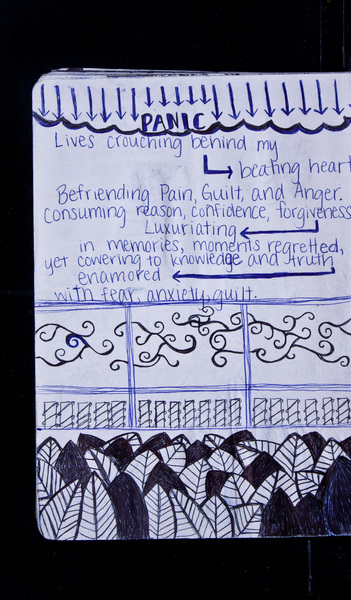 PANIC
Lives crouching behind my
beating heart
Befriending Pain, Guilt, and Anger.
Consuming reason, confidence, forgiveness
Luxuriating
in memories, moments regretted,
yet cowering to knowledge and truth
enamored
with fear, anxiety, guilt.